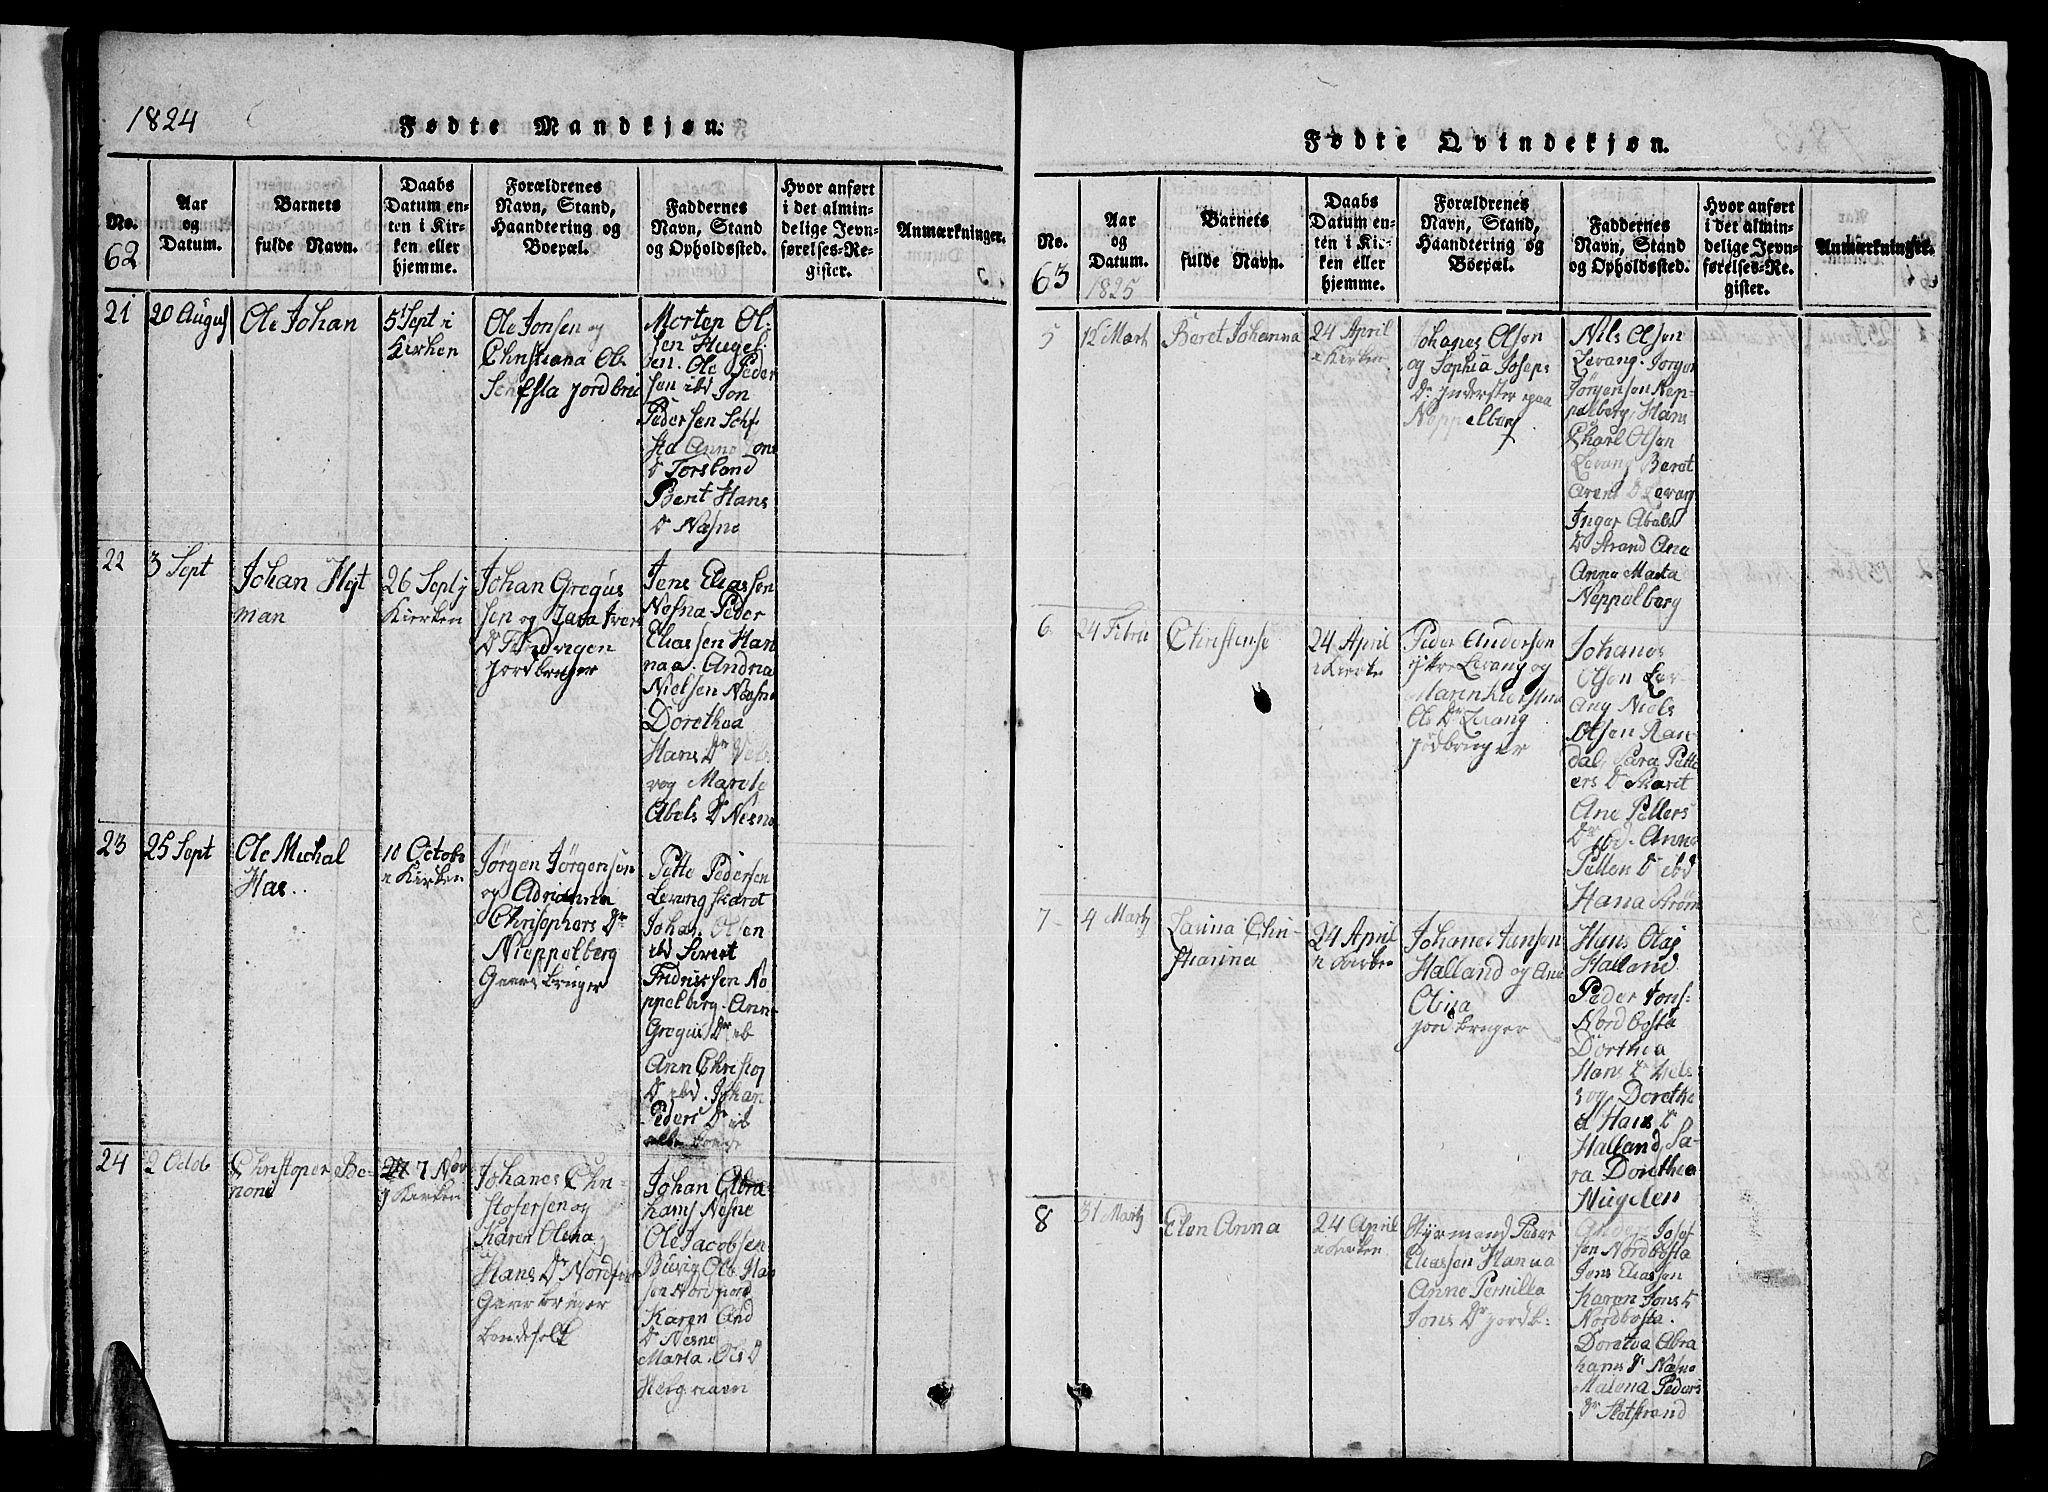 1824
Fødte Mandkjøn.
No.
62
Aar
og
Datum.
Barnets
fulde Navn.
Daabs
Datum en-
ten i Kir-
ken eller
hjemme.
Forældrenes
Navn, Stand,
Haandtering og
Boepæl.
Faddernes
Navn, Stand
og Opholdssted.
Hvor anført
i det almin-
delige Jevn-
førelses-Re-
gister.
Anmærkninger.
21
20 August
Ole Johan
5 Sept i
Kirken
Ole Jonsen og
Christiana Ols
jordbru
Morten Ol-
sen Hugel
sen. Ole Peder
sen ibd Jon
Pedersen
Anne
Dr Torsland
Berit Hans
Dr Næsne
22
3 Sept
Johan Hyt
man
26 Sept j
Kierken
Johan Gregus
sen og Iver
Dr
jordbruger
Jens Eliassen
Nesna Peder
Eliassen Han
naa. Andria
Nielsen Næsne
Dorethea
Hans Dr
vog Marele
Abels Dr Nesne
23
25 Sept
Ole Michal
Has..
10 Octob
i Kirken
Jørgen Jørgensen
og Adrianna
Christophers Dr
Nieppelberg
Gaardbruger
Pette Pedersen
Levang skaret
Johan Olsen
ibd
Fridrichsen Ne
ppelberg. Ann
Gregus Dr ib
Ann Christop
Dr ibd. Johan
Peders Dr ib
24
2 Octob
Christoper Be-
none
7 Nov
j Kirken
Johanes Chri-
stofersen og
Karen Olena
Hans Dr Nordfiord
Gaardbruger
bondefolk
Johan Abra
hams Nesne
Ole Jacobsen
Buvig Ole Han
sen Nordfiord
Karen And
Dr Nesne
Marta. Ols D
Helgriaavn
Fødte Qvindekjøn.
No.
63
Aar
og
Datum.
1825
Barnets
fulde Navn.
Daabs
Datum en-
ten i Kir-
ken eller
hjemme.
Forældrenes
Navn, Stand,
Haandtering og
Boepæl.
Faddernes
Navn, Stand
og Opholdssted.
Hvor anført
i det almin-
delige Jevn-
førelses-Re-
gister.
Anmærkninger.
5
12 Mart
Beret Johanna
24 April
i Kirken
Johanes Olsen
og Sophia Joseps
Dr Inderster paa
Neppelberg
Nils Olsen
Levang. Jørgen
Jørgensen Nep-
pelberg, Hans
Charl Olsen
Levang Beret
Arent Dr Levang
Inger Abels
Dr Strand Ana
Anne Marta
Neppelberg
6
24 Febru
Christense
24 April
i Kirke
Peder Andersen
ytre Levang og
Maren Kierstina
Ols Dr Levang
jordbruger
Johanes
Olsen Lev-
ang Niels
Olsen Ran-
dal, Sara Pette
ers Dr Skaret
Ane Petters
Dr ibd. Anne
Petters Dr ibd
Hana Strøm
7
4 Martz
Larina Chri-
stianna
24 April
i Kirken
Johanes Jansen
Halland og Ane
Olisa
jordbruger
Hans Olaj
Halland
Peder Jons-
Nordbosta
Dorthea
Hans Dr Vels
vog Dorethe
a Hans Dr
Halland, Sa-
ra Dorethea
Hugelen
8
31 Martz
Elen Anna
24 April
i Kirken
Styrmand Peder
Eliassen Hanna
Anne Pernilla
Jons Dr jordb:
Anders Josef
sen Nordbosta
Jens Eliassen
Karen Jons Dr
Nordbosta.
Doretea Abra
hams Dr Næsne
Malena Peders
Dr Sletstrand